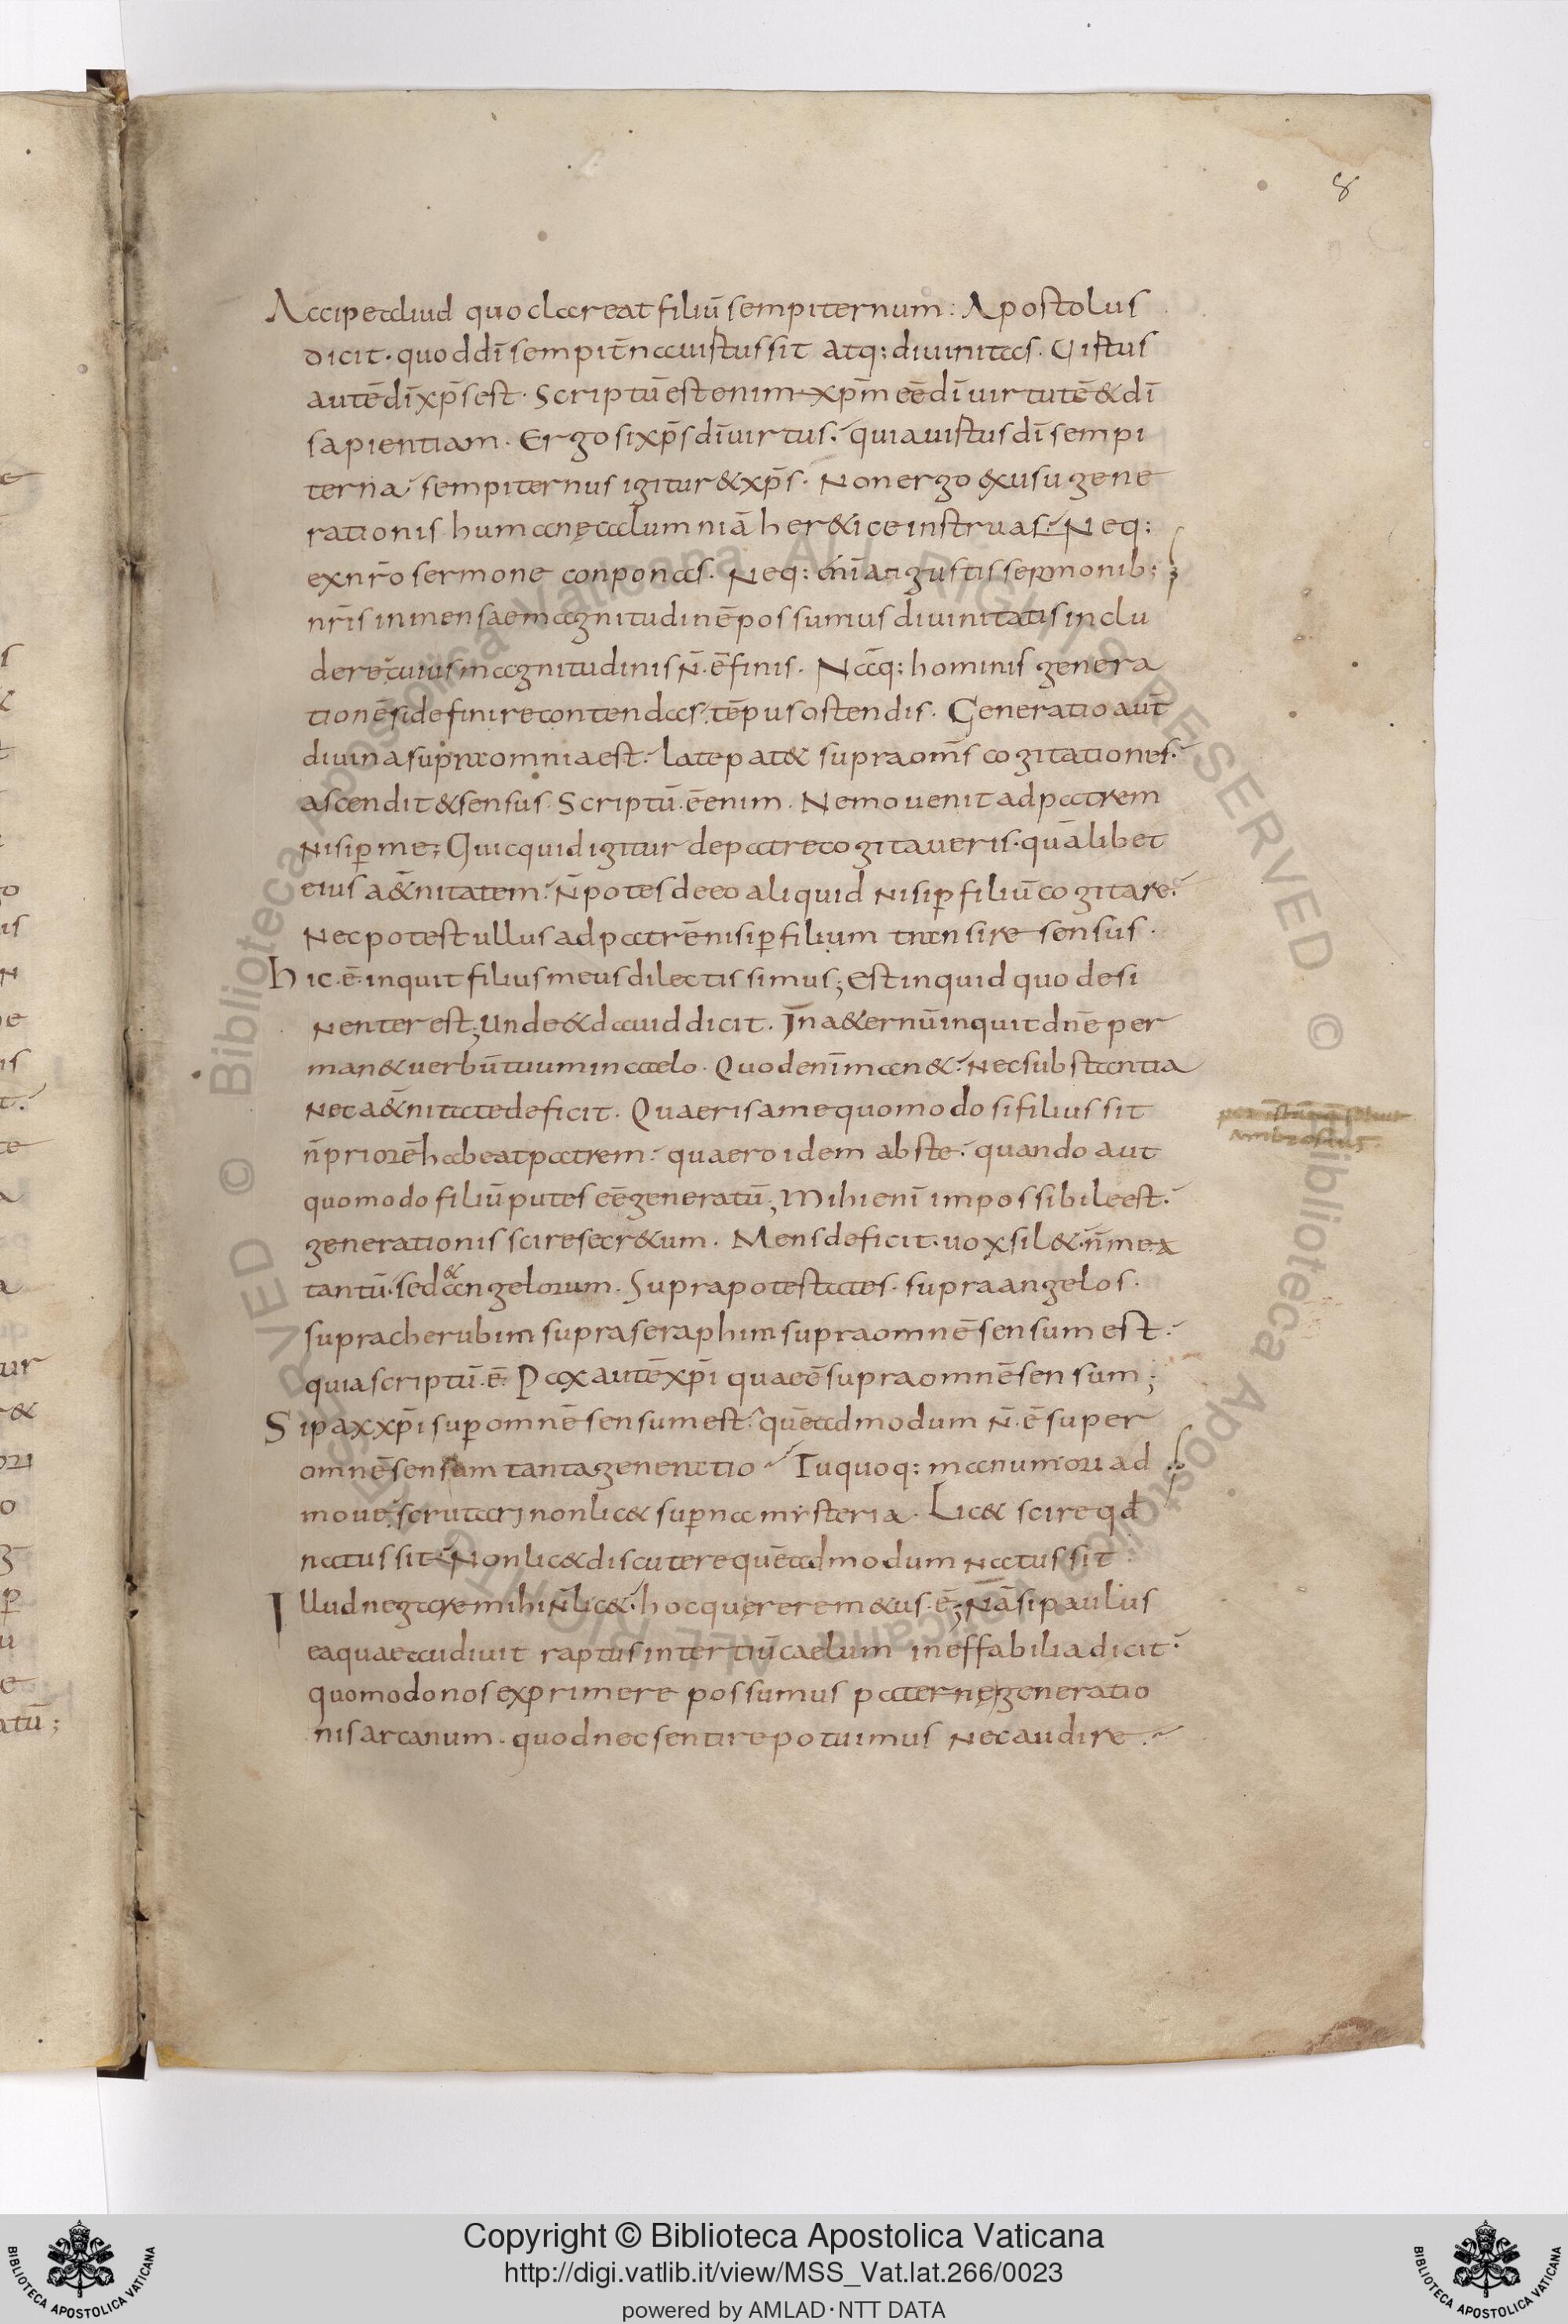 8
Accipe aliud quo clareat filiū sempiternum : Apostolus
dicit · quod dī sempit̄na uirtus sit atq: diuinitas . Uirtus
autē dī xp̄s est · Scriptū est enim xp̄m eē dī uirtutē & dī
sapientiam . Ergo si xp̄s dī uirtus · quia uirtus dī sempi
terna sempiternus igitur & xp̄s · Non ergo ex usu gene
rationis humanę calumniā her&ice instruas · Neq:
ex nr̄o sermone conponas . Neq: enī angustis sermonib:
nr̄is inmensae magnitudinē possumus diuinitatis inclu
dere cuius magnitudinis n̄ . ē finis . Nāq: hominis genera
tionē si definire contendas tēpus ostendis . Generatio aut̄
diuina supra omnia est · late pat& supra om̄s cogitationes ·
ascendit & sensus . Scriptū . ē enim . Nemo uenit ad patrem
nisi ꝑ me ; Quicquid igitur de patre cogitaueris · quālibet
eius a&̄nitatem · N̄ potes de eo aliquid nisi ꝑ filiū cogitare ·
Nec potest ullus ad patrē nisi ꝑ filium transire sensus .
Hic . ē . inquit filius meus dilectissimus ; Est inquid quod esi
nenter est ; Unde & dauid dicit . In a&ernū inquit dn̄e per
man& uerbū tuum in caelo . Quod enī man& · nec substantia
nec a&̄nitate deficit . Quaeris a me quomodo si filius sit
n̄ priorē habeat patrem · quaero idem abs te · quando aut
quomodo filiū putes eē generatū ; Mihi enī impossibile est ·
generationis scire secr&um . Mens deficit · uox sil& · n̄ mea
tantū · sed & angelorum . Supra potestates · supra angelos ·
supra cherubim supra seraphim supra omnē sensum est ·
quia scriptū . ē · Pax autē xp̄i quae ē supra omnē sensum ;
Si pax xp̄i sup̄ omnē sensum est · quēadmodum n̄ . ē super
omnē sensum tanta generatio · Tu quoq: manum ori ad
moue · scrutari non lic& suꝑna mysteria . Lic& scire qd̄
natus sit · Non lic& discutere quēadmodum natus sit
Illud negare mihi n̄ lic& · hoc quęrere m&us . ē ; Nā si paulus
ea quae audiuit raptus in tertiū caelum ineffabilia dicit ·
quomodo nos exprimere possumus paternę generatio
nis arcanum · quod nec sentire potuimus nec audire ·
ambrosius
Copyright © Biblioteca Apostolica Vaticana
http://digi.vatlib.it/view/MSS_Vat.lat.266/0023
powered by AMLAD·NTT DATA